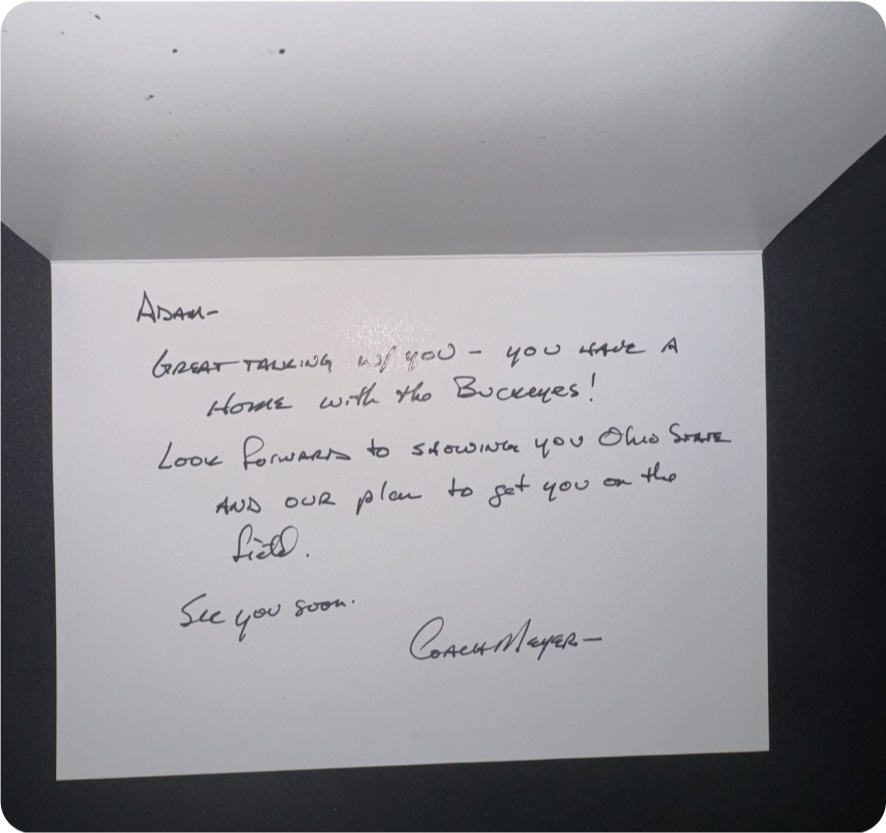 ADAM-
GREAT TALKING w/ you - you HAVE A
HOME with the Buckeyes!
Look forward to SHOWING you Ohio STATE
AND OUR plan to get you on the
field.
See you soon.
COACH MEYER-